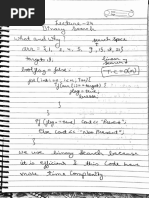 Lecture-24
Binary Search
what and why? Search space
arr = [
target = 
bool flag = false;
for (int i=0, i<n, i++) {
if (arr[i] == target) {
flag = true;
}
}
if (flag == true) cout << "Present";
Else cout << "Not Present";
we use Binary search because
it is efficient & this code takes
more time complexity